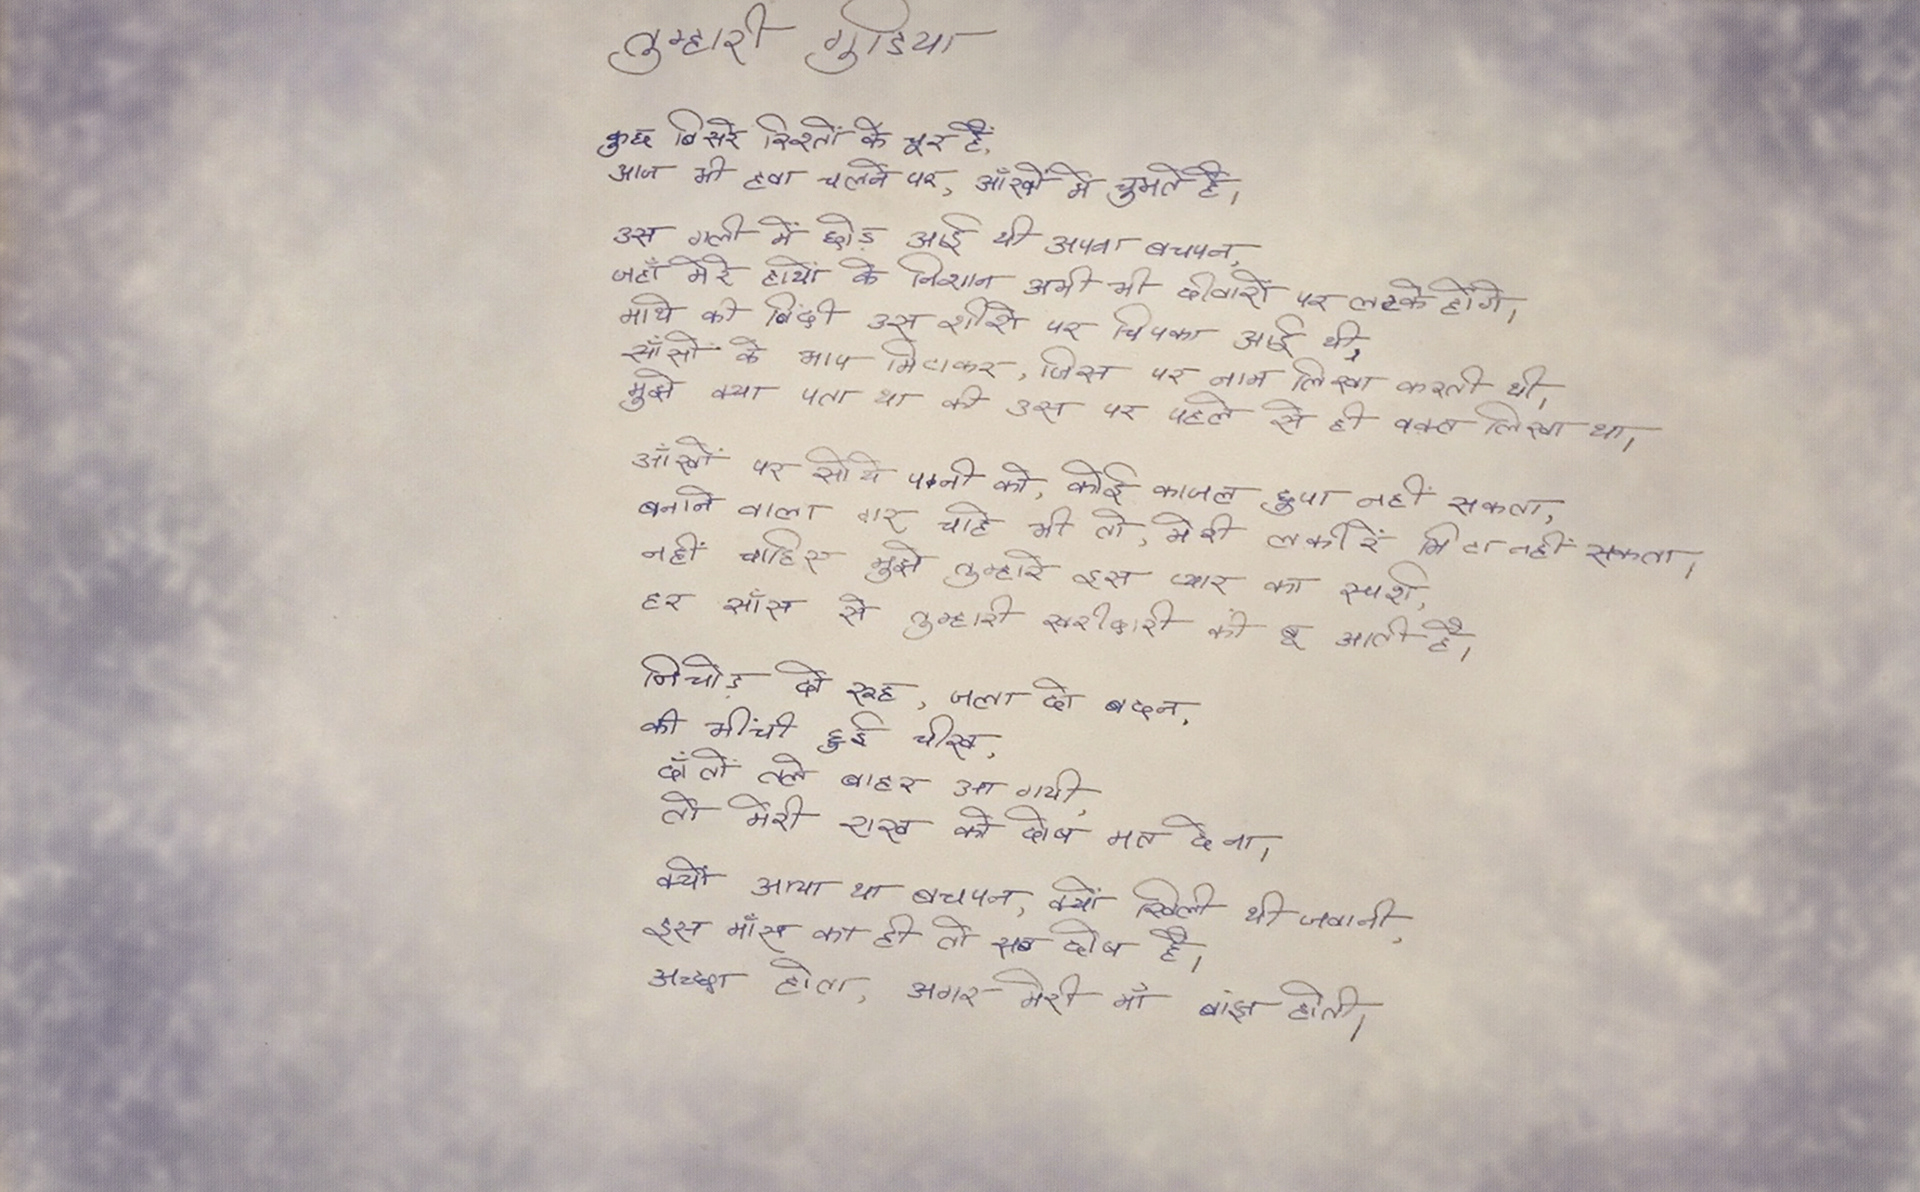 तुम्हारी गुडिया
कुछ बिसरे रिश्तों के चूर हैं,
आज भी हवा चलने पर, आँखों में चुभते हैं,
उस गली में छोड़ आई थी अपना बचपन,
जहाँ मेरे हाथों के निशान अभी भी दीवारों पर लटके होंगे,
माथे की बिंदी उस शीशे पर चिपका आई थी,
साँसों के भाप मिटाकर, जिस पर नाम लिखा करती थी,
मुझे क्या पता था की उस पर पहले से ही वक्त लिखा था,
आँखों पर सोये पानी को, कोई काजल छुपा नहीं सकता,
बनाने वाला गर चाहे भी तो, मेरी लकीरें मिटा नहीं सकता,
नहीं चाहिए मुझे तुम्हारे इस प्यार का स्पर्श,
हर साँस से तुम्हारी खरीदारी की बू आती है,
निचोड़ दो रूह, जला दो बदन,
की भींची हुई चीख,
दाँतों तले बाहर आ गयी,
तो मेरी राख को दोष मत देना,
क्यों आया था बचपन, क्यों खिली थी जवानी,
इस माँस का ही तो सब दोष है,
अच्छा होता, अगर मेरी माँ बांझ होती,